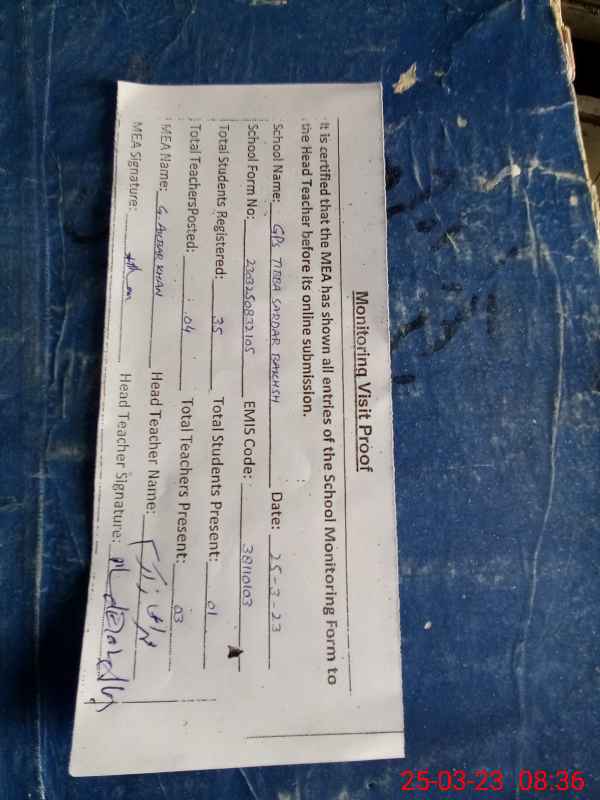 Monitoring Visit Proof
It is certified that the MEA has shown all entries of the School Monitoring Form to
the Head Teacher before its online submission.
School Name: GPS TIBBA SARDAR BAKHSH Date: 25-3-23
School Form No: 2303250832105 EMIS Code: 38110103
Total Students Registered: 35 Total Students Present: 01
Total TeachersPosted: 04 Total Teachers Present: 03
MEA Name: G. AKBAR KHAN Head Teacher Name:
MEA Signature: Head Teacher Signature:
25-03-23 08:36